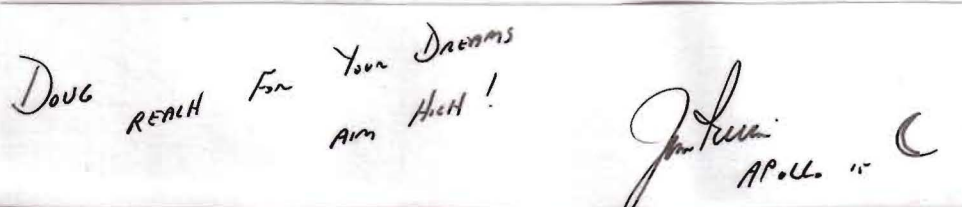 Doug REACH For Your Dreams
AIM HIGH!
Jim Irwin
APOLLO 15